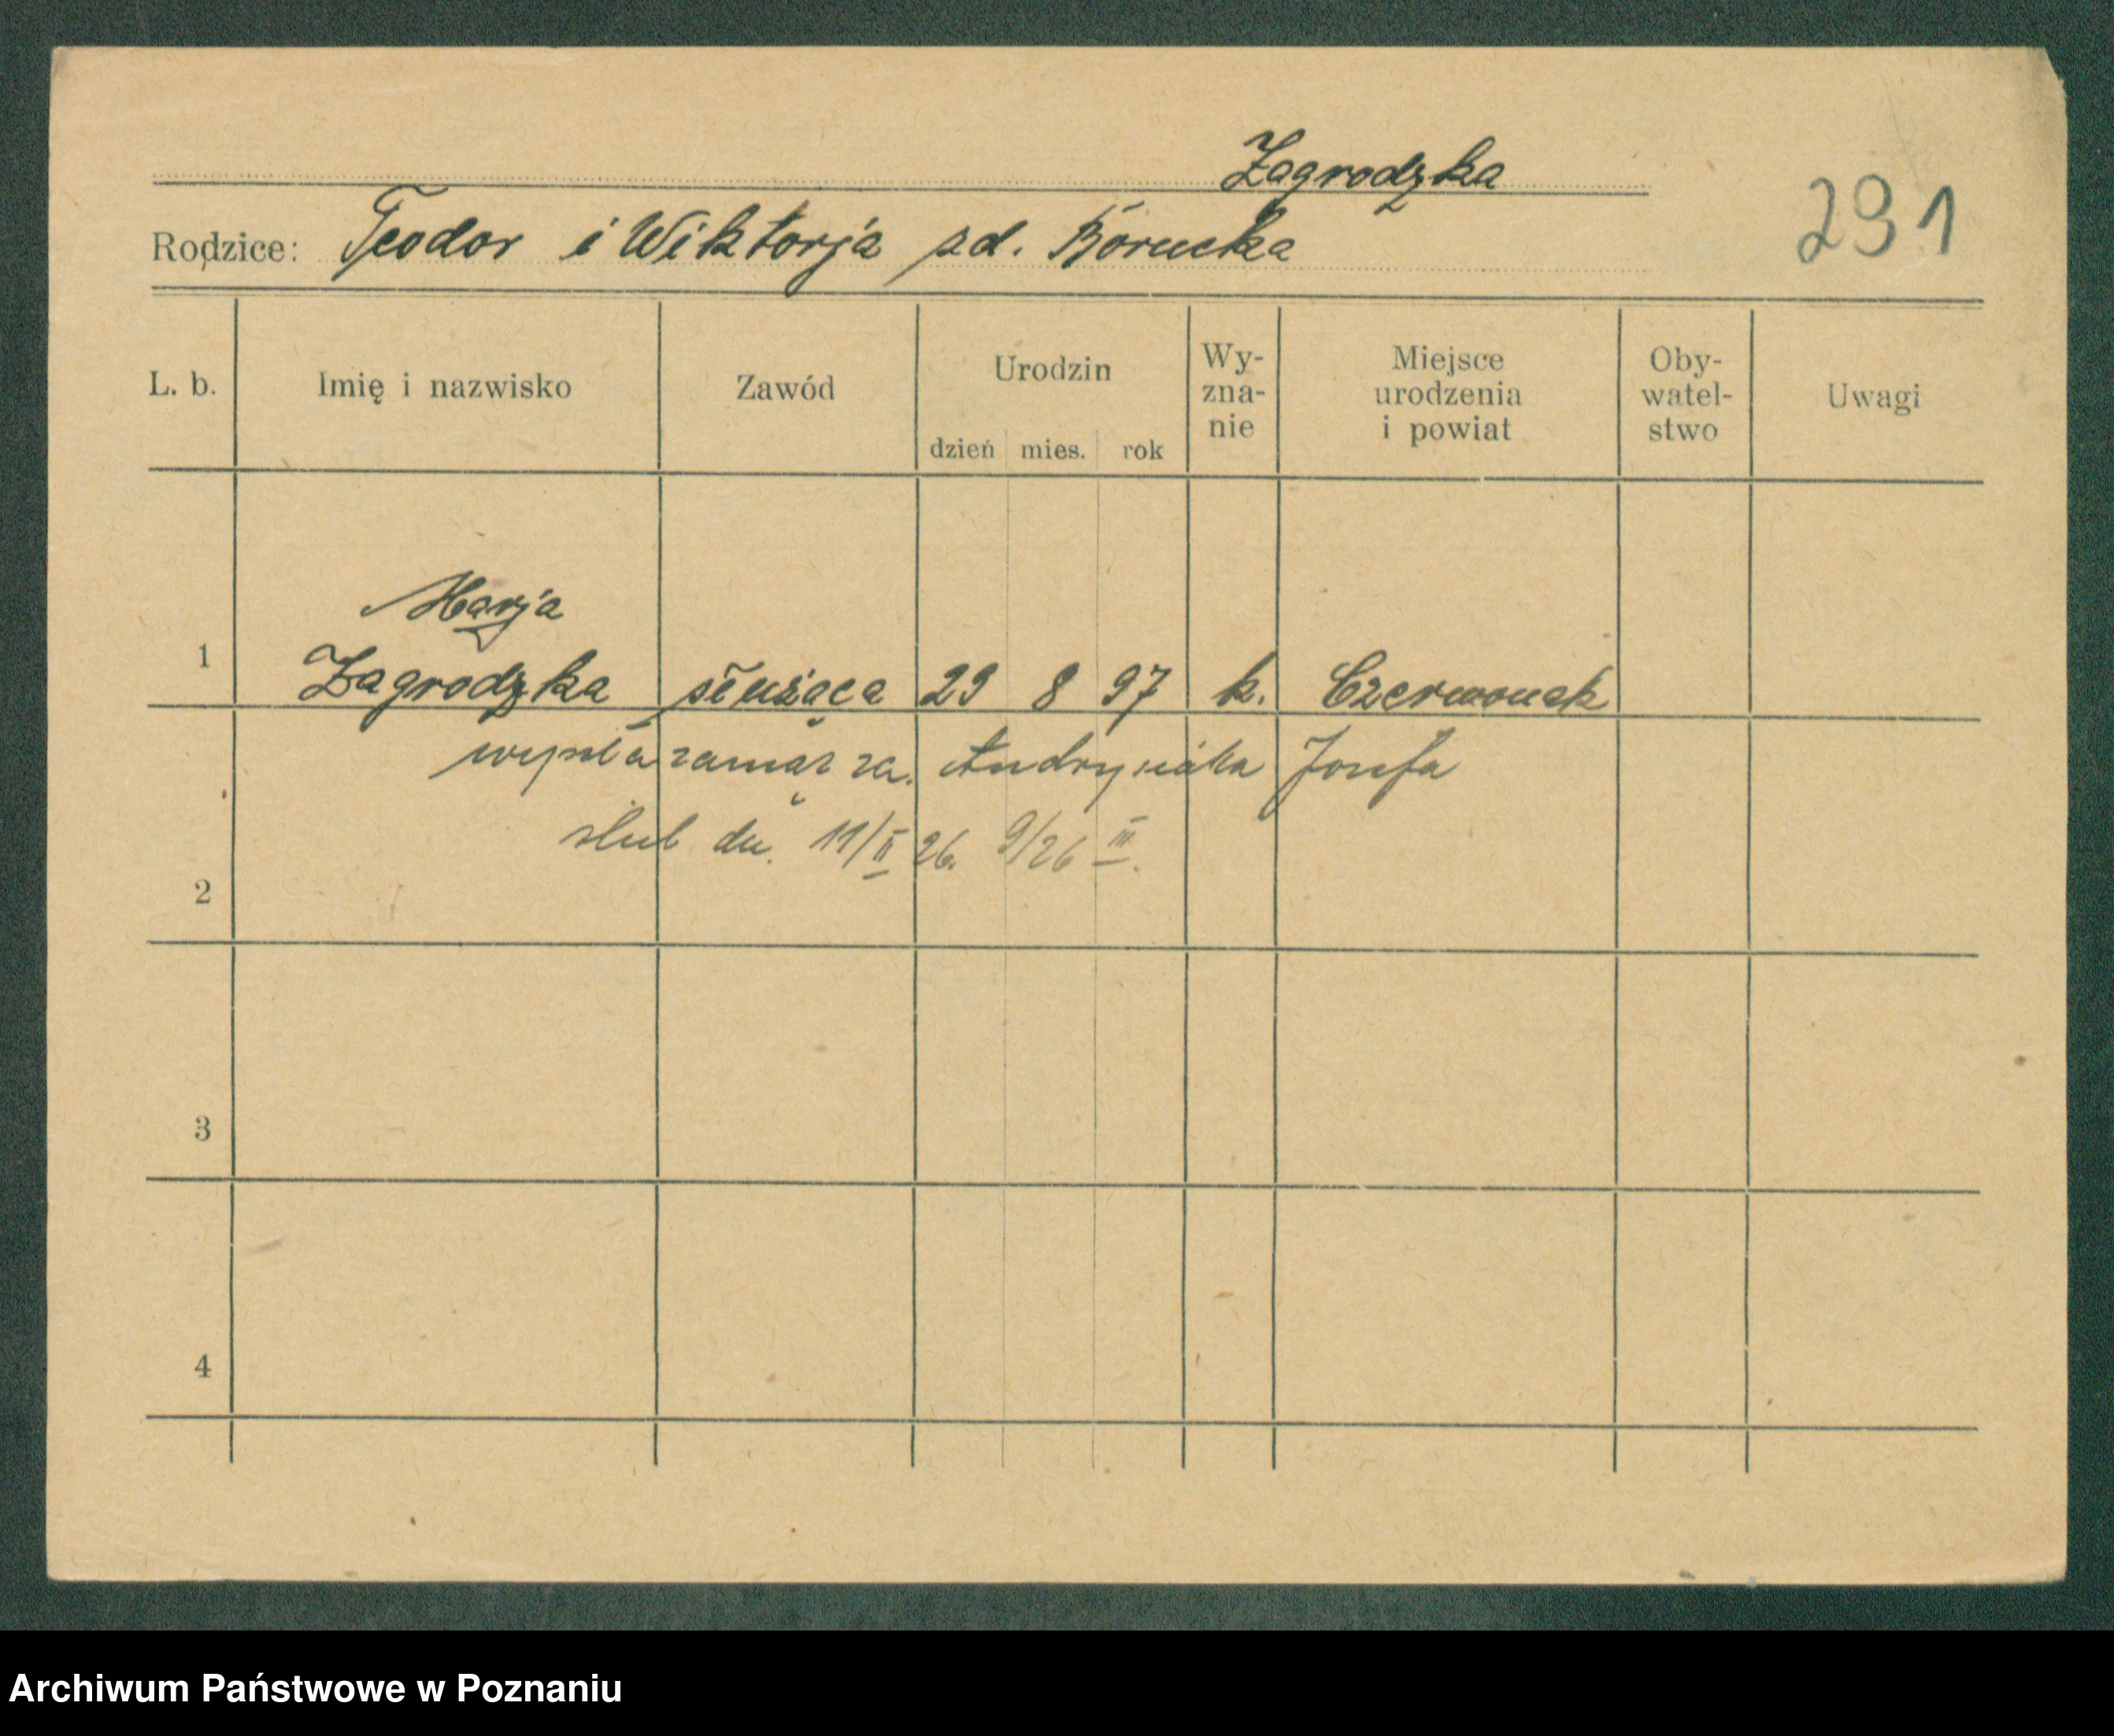 Zagrodzka
291
Rodzice: Teodor i Wiktorja zd. Borucka
L. b. Imię i nazwisko Zawód Urodzin dzień mies. rok Wy-zna-nie Miejsce urodzenia i powiat Oby-watel-stwo Uwagi
Marja
1 Zagrodzka służąca 29 8 97 k. Czerwonak
wyszła zamąż za. Andrysiaka Józefa
ślub dn. 11/II 26. 9/26 III.
2
3
4
Archiwum Państwowe w Poznaniu